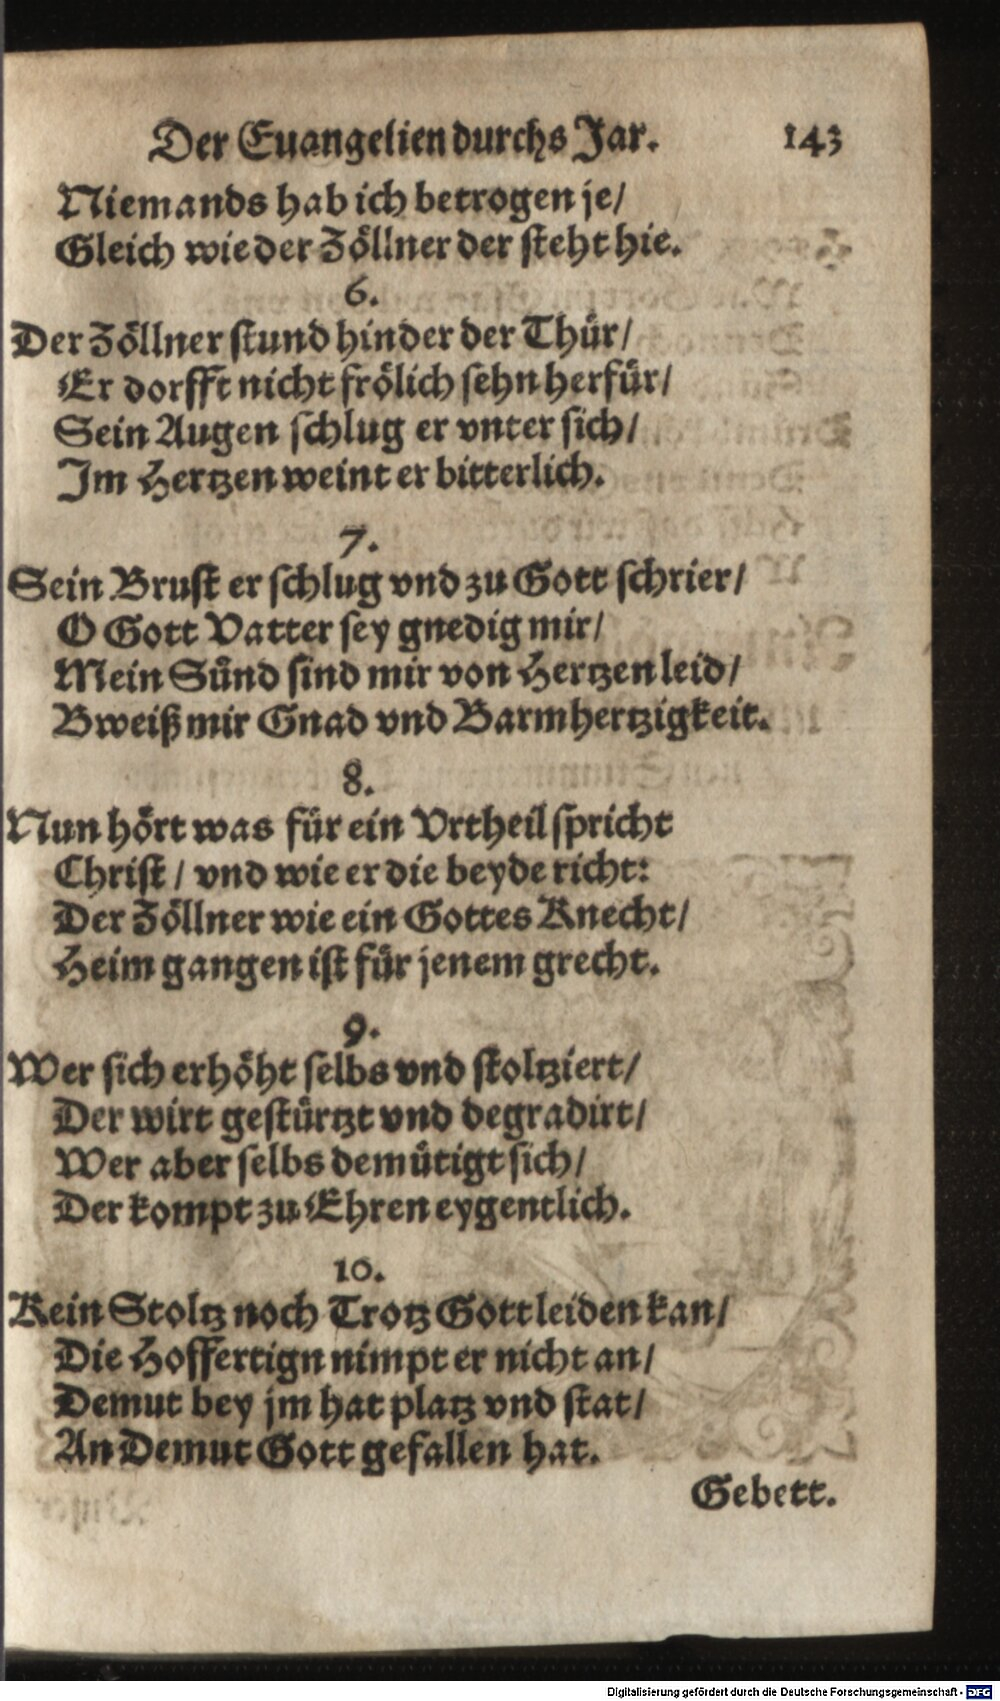 Der Euangelien durchs Jar. 143
Niemands hab ich betrogen je/
Gleich wie der Zöllner der steht hie.
6.
Der Zöllner stund hinder der Thür/
Er dorfft nicht frölich sehn herfür/
Sein Augen schlug er vnter sich/
Im Hertzen weint er bitterlich.
7.
Sein Brust er schlug vnd zu Gott schrier/
O Gott Vatter sey gnedig mir/
Mein Sünd sind mir von Hertzen leid/
Bweiß mir Gnad vnd Barmhertzigkeit.
8.
Nun hört was für ein Vrtheil spricht
Christ / vnd wie er die beyde richt:
Der Zöllner wie ein Gottes Knecht/
Heim gangen ist für jenem grecht.
9.
Wer sich erhöht selbs vnd stoltziert/
Der wirt gestürtzt vnd degradirt/
Wer aber selbs demütigt sich/
Der kompt zu Ehren eygentlich.
10.
Kein Stoltz noch Trotz Gott leiden kan/
Die Hoffertign nimpt er nicht an/
Demut bey jm hat platz vnd stat/
An Demut Gott gefallen hat.
Gebett.
Digitalisierung gefördert durch die Deutsche Forschungsgemeinschaft - DFG